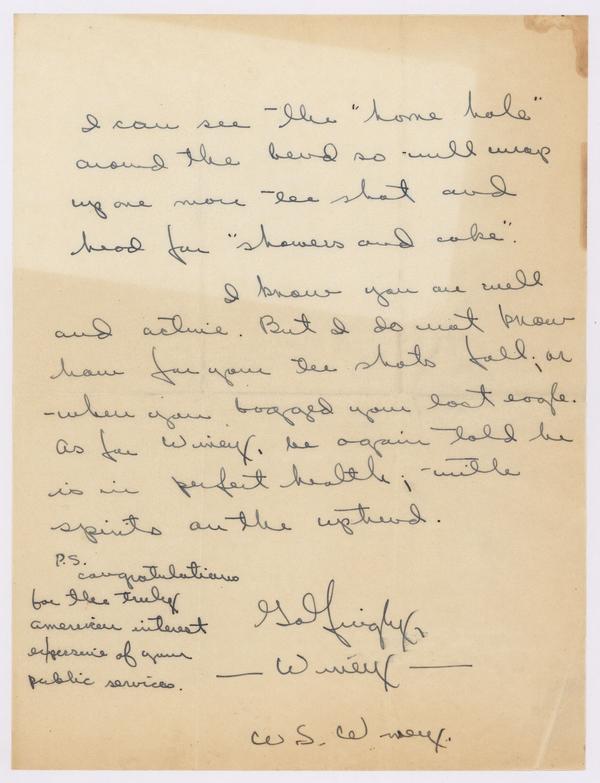 I can see the "home hole"
around the bend so will wrap
up one more tee shot and
head for "showers and coke".
I know you are well
and active. But I do not know
how far your tee shots fall; or
when you bagged your last eagle.
As for Winey, be again told he
is in perfect health; with
spirits on the uptrend.
P.S.
congratulations
for the truly
american interest
expansive of your
public services.
Golfingly,
— Winey —
W. S. Winey.